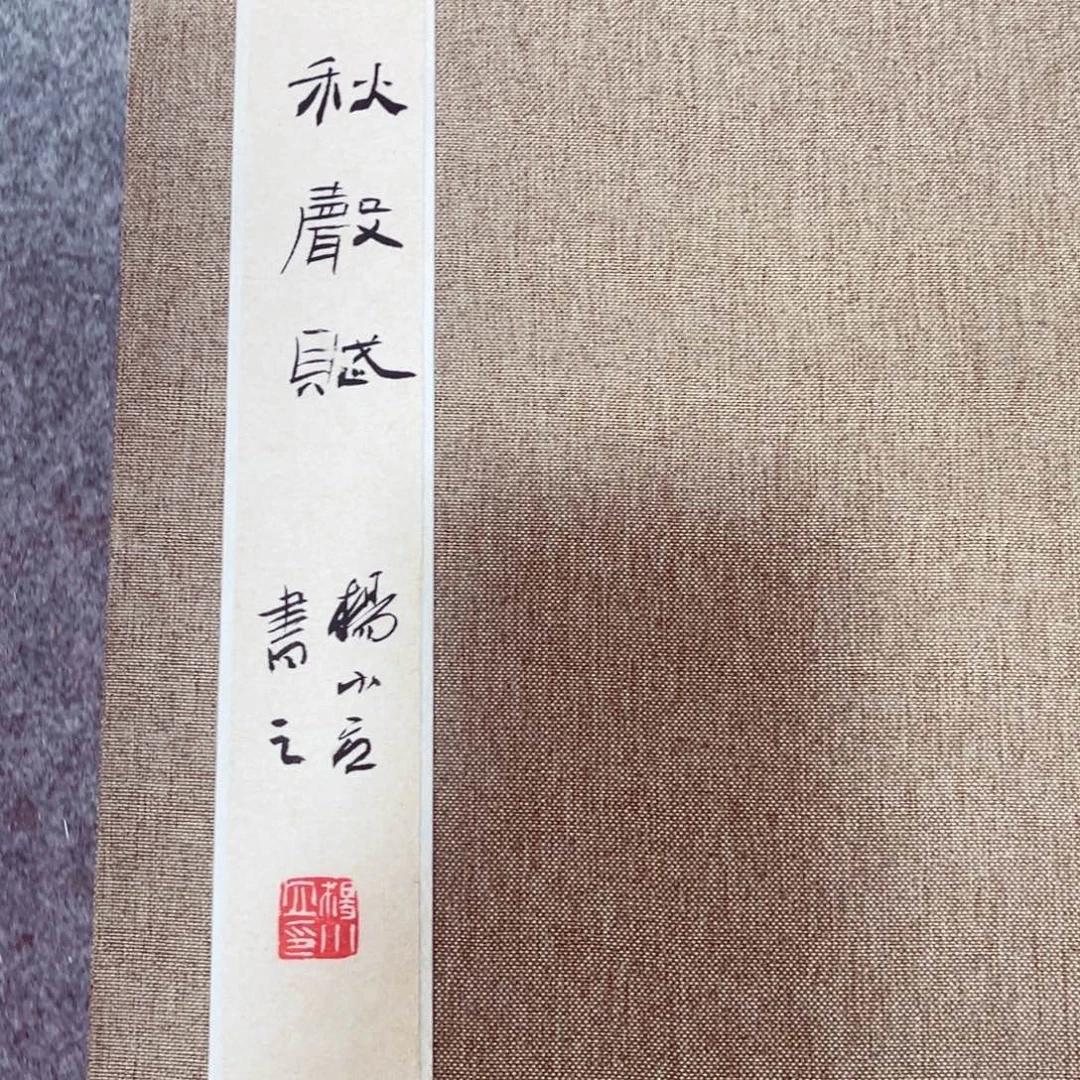 秋聲賦
楊小立
書之
楊小立印